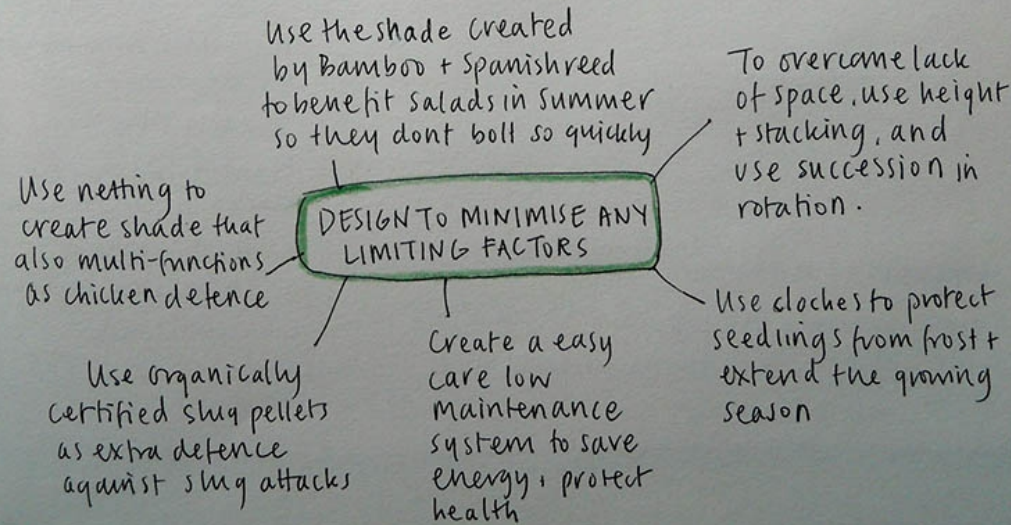 Use the shade created
by Bamboo + Spanish reed
to benefit salads in summer
so they dont bolt so quickly
To overcome lack
of space, use height
+ stacking, and
use succession in
rotation.
Use netting to
create shade that
also multi-functions
as chicken defence
DESIGN TO MINIMISE ANY
LIMITING FACTORS
Use cloches to protect
seedlings from frost +
extend the growing
season
Use organically
certified slug pellets
as extra defence
against slug attacks
Create a easy
care low
maintenance
system to save
energy + protect
health